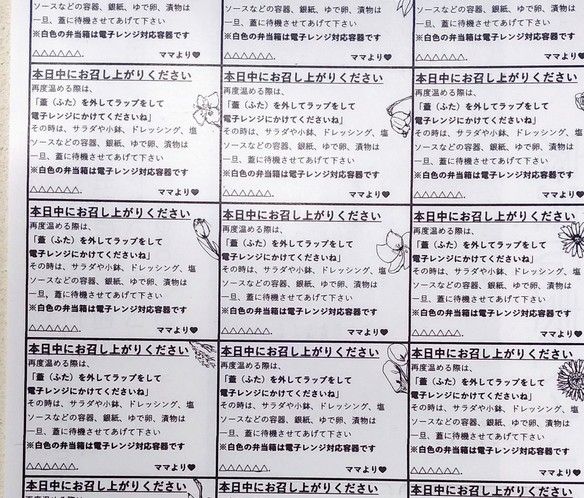 ソースなどの容器、銀紙、ゆで卵、漬物は
一旦、蓋に待機させてあげて下さい
※白色の弁当箱は電子レンジ対応容器です
△△△△△△. ママより♥
ソースなどの容器、銀紙、ゆで卵、漬物は
一旦、蓋に待機させてあげて下さい
※白色の弁当箱は電子レンジ対応容器です
△△△△△△. ママより♥
ソースなどの容器、銀紙、ゆで卵、漬物は
一旦、蓋に待機させてあげて下さい
※白色の弁当箱は電子レンジ対応容器です
△△△△△△. ママより♥
本日中にお召し上がりください
再度温める際は、
「蓋（ふた）を外してラップをして
電子レンジにかけてくださいね」
その時は、サラダや小鉢、ドレッシング、塩
ソースなどの容器、銀紙、ゆで卵、漬物は
一旦、蓋に待機させてあげて下さい
※白色の弁当箱は電子レンジ対応容器です
△△△△△△. ママより♥
本日中にお召し上がりください
再度温める際は、
「蓋（ふた）を外してラップをして
電子レンジにかけてくださいね」
その時は、サラダや小鉢、ドレッシング、塩
ソースなどの容器、銀紙、ゆで卵、漬物は
一旦、蓋に待機させてあげて下さい
※白色の弁当箱は電子レンジ対応容器です
△△△△△△. ママより♥
本日中にお召し上がりください
再度温める際は、
「蓋（ふた）を外してラップをして
電子レンジにかけてくださいね」
その時は、サラダや小鉢、ドレッシング、塩
ソースなどの容器、銀紙、ゆで卵、漬物は
一旦、蓋に待機させてあげて下さい
※白色の弁当箱は電子レンジ対応容器です
△△△△△△. ママより♥
本日中にお召し上がりください
再度温める際は、
「蓋（ふた）を外してラップをして
電子レンジにかけてくださいね」
その時は、サラダや小鉢、ドレッシング、塩
ソースなどの容器、銀紙、ゆで卵、漬物は
一旦、蓋に待機させてあげて下さい
※白色の弁当箱は電子レンジ対応容器です
△△△△△△. ママより♥
本日中にお召し上がりください
再度温める際は、
「蓋（ふた）を外してラップをして
電子レンジにかけてくださいね」
その時は、サラダや小鉢、ドレッシング、塩
ソースなどの容器、銀紙、ゆで卵、漬物は
一旦、蓋に待機させてあげて下さい
※白色の弁当箱は電子レンジ対応容器です
△△△△△△. ママより♥
本日中にお召し上がりください
再度温める際は、
「蓋（ふた）を外してラップをして
電子レンジにかけてくださいね」
その時は、サラダや小鉢、ドレッシング、塩
ソースなどの容器、銀紙、ゆで卵、漬物は
一旦、蓋に待機させてあげて下さい
※白色の弁当箱は電子レンジ対応容器です
△△△△△△. ママより♥
本日中にお召し上がりください
再度温める際は、
「蓋（ふた）を外してラップをして
電子レンジにかけてくださいね」
その時は、サラダや小鉢、ドレッシング、塩
ソースなどの容器、銀紙、ゆで卵、漬物は
一旦、蓋に待機させてあげて下さい
※白色の弁当箱は電子レンジ対応容器です
△△△△△△. ママより♥
本日中にお召し上がりください
再度温める際は、
「蓋（ふた）を外してラップをして
電子レンジにかけてくださいね」
その時は、サラダや小鉢、ドレッシング、塩
ソースなどの容器、銀紙、ゆで卵、漬物は
一旦、蓋に待機させてあげて下さい
※白色の弁当箱は電子レンジ対応容器です
△△△△△△. ママより♥
本日中にお召し上がりください
再度温める際は、
「蓋（ふた）を外してラップをして
電子レンジにかけてくださいね」
その時は、サラダや小鉢、ドレッシング、塩
ソースなどの容器、銀紙、ゆで卵、漬物は
一旦、蓋に待機させてあげて下さい
※白色の弁当箱は電子レンジ対応容器です
△△△△△△. ママより♥
本日中にお召し上がりください
本日中にお召し上がりください
本日中にお召し上がりください